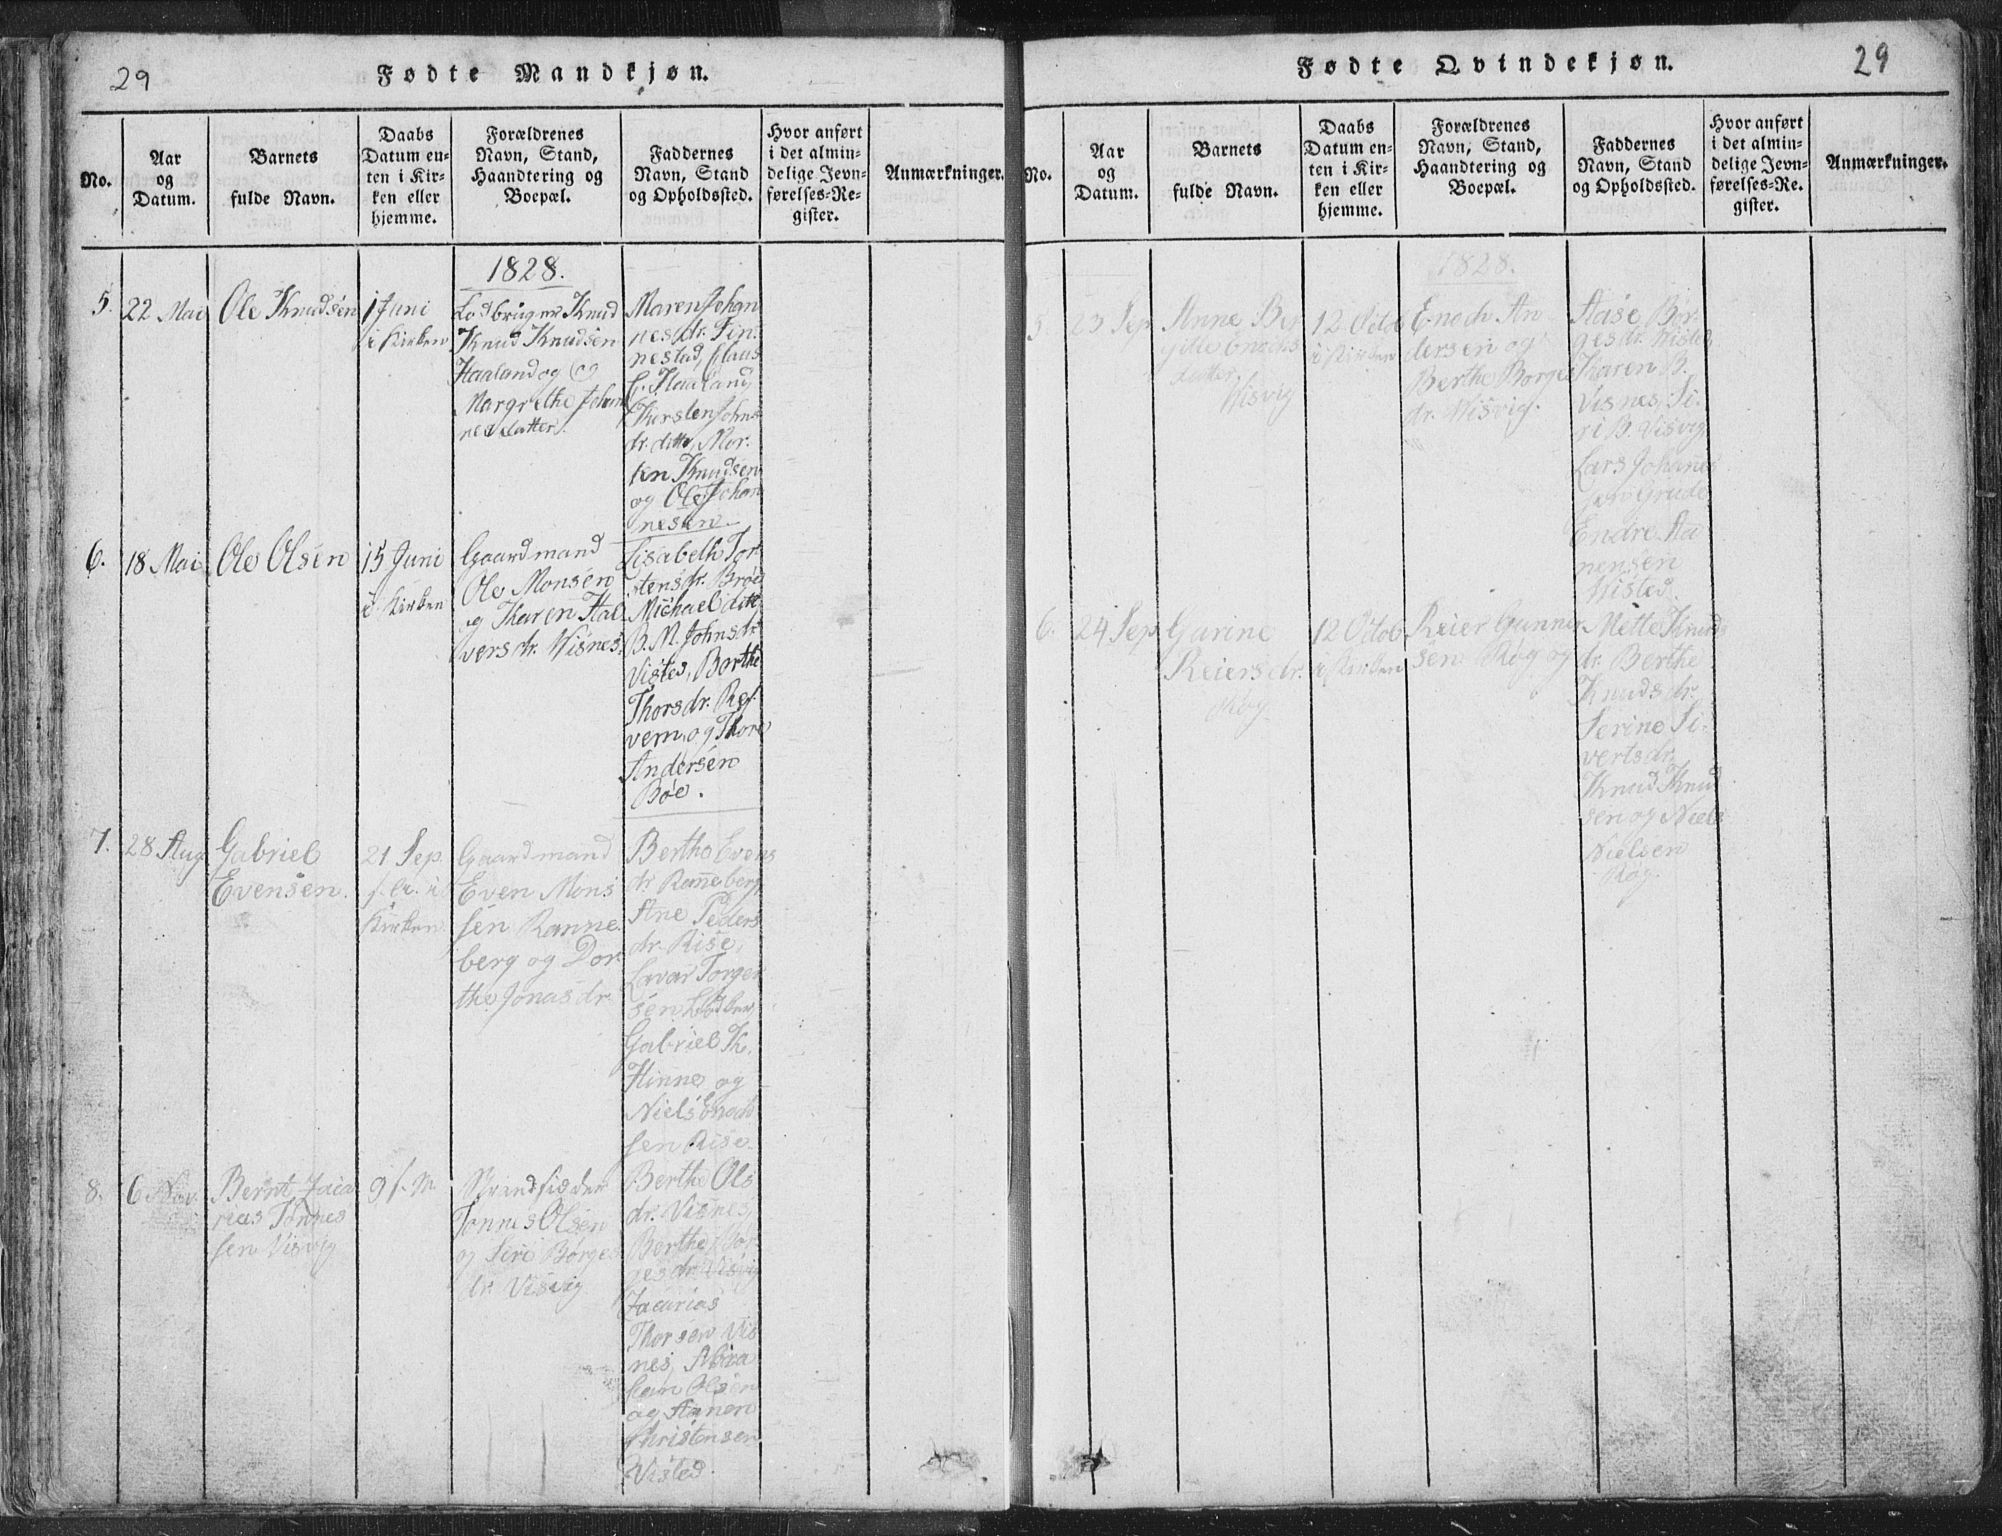 29
Fødte Mandkjøn.
No.
Aar
og
Datum.
Barnets
fulde Navn.
Daabs
Datum en-
ten i Kir-
ken eller
hjemme.
Forældrenes
Navn, Stand,
Haandtering og
Boepæl.
Faddernes
Navn, Stand
og Opholdssted.
Hvor anført
i det almin-
delige Jevn-
førelses-Re-
gister.
Anmærkninger.
1828.
5.
22 Mai
Ole Knudsen
1 Juni
i Kirken
Knud Knudsen
Haaland og
Margrethe Johan
nesdatter.
Maren Johan
nesdr. Fin-
nestad, Claus
Haaland
Kersten Johns
dr. ditto, Mor-
ten Knudsen
og Ole Johan
nesen
6.
18 Mai
Ole Olsen
15 Juni
i Kirken
Gaardmand
Ole Monsen
og Karen Hal
versdr. Wisnes.
Lisabeth Tor
stensdr. Bröe
Michael ditto
B. M. Johnsdr
Visted, Berthe
Thorsdr. Ref-
vem, og Thore
Andersen
Böe.
7.
28 Aug
Gabriel
Evensen.
21 Sep.
i
Kirken
Gaardmand
Even Mons
sen Ranne-
berg og Dor
the Jonasdr.
Berthe Evens
dr Ranneberg,
Ane Peders
dr. Rise,
Torger
sen
Gabriel K.
Hinne og
Niels Enoch
sen Rise.
8.
6 Nov.
Bernt Zaca
rias Tönnes
sen Visvig
9
Strandsidder
Tönnes Olsen
og Siri Börges
dr. Visvig
Berthe Ols
dr. Visnes,
Berthe Bör-
gesdr. Visvig
Zacarias
Thorsen Vis
nes, Abra
ham Olsen
og Aanen
Christensen
Visted.
29
Fødte Qvindekjøn.
No.
Aar
og
Datum.
Barnets
fulde Navn.
Daabs
Datum en-
ten i Kir-
ken eller
hjemme.
Forældrenes
Navn, Stand,
Haandtering og
Boepæl.
Faddernes
Navn, Stand
og Opholdssted.
Hvor anført
i det almin-
delige Jevn-
førelses-Re-
gister.
Anmærkninger.
1828.
5.
23 Sep
Anne Ber
gitte Enochs
datter
Wisvig
12 Octob
i Kirken
Enoch An
dersen og
Berthe Börges
dr. Wisvig.
Aase Bör
gesdr. Wisted,
Karen B.
Visnes, Si-
ri B. Visvig,
Lars Johanne
sen Grude
Endre Aa
nensen
Wisted.
6.
24 Sep
Garine
Reiersdr.
Røg
12 Octob
i Kirken
Reier Gunnar
sen Røg og
Mette Knuds
dr. Berthe
Knudsdr.
Serine Si-
vertsdr.
Knud Knud
sen og Niels
Nielsen
Røg.